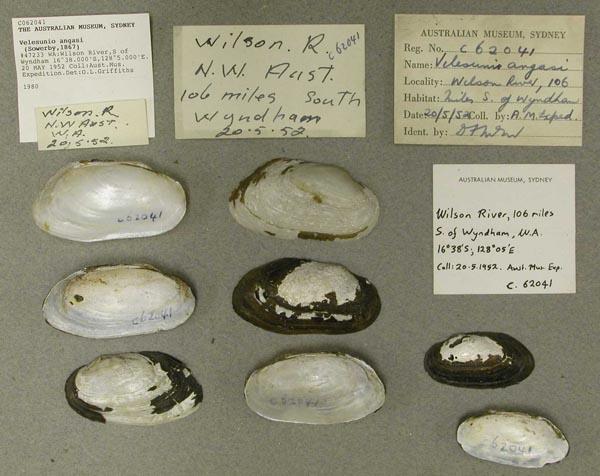 C062041
THE AUSTRALIAN MUSEUM, SYDNEY
Velesunio angasi
(Sowerby,1867)
#47233 WA:Wilson River,S of
Wyndham 16°38.000'S,128°5.000'E.
20 MAY 1952 Coll:Aust.Mus.
Expedition.Det:O.L.Griffiths
1980
Wilson.R
N.W Aust.
W.A.
20.5.52.
Wilson. R
c62041
N.W. Aust.
106 miles South
Wyndham
20.5.52.
AUSTRALIAN MUSEUM, SYDNEY
Reg. No. C62041
Name: Velesunio angasi
Locality: Wilson River, 106
Habitat: miles S. of Wyndham
Date 20/5/52 Coll. by: A.M. Exped.
Ident. by:
AUSTRALIAN MUSEUM, SYDNEY
Wilson River, 106 miles
S. of Wyndham, W.A.
16°38'S; 128°05'E
Coll: 20-5-1952. Aust. Mus. Exp.
C. 62041
C62041
C62041
C62041
62041